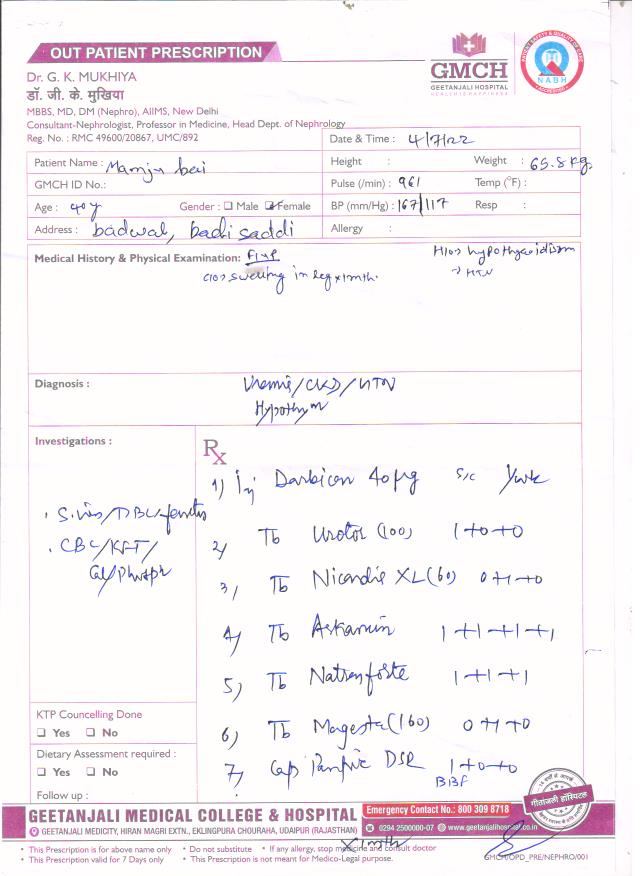 OUT PATIENT PRESCRIPTION
GMCH
GEETANJALI HOSPITAL
NABH
Dr. G. K. MUKHIYA
डॉ. जी. के. मुखिया
MBBS, MD, DM (Nephro), AIIMS, New Delhi
Consultant-Nephrologist, Professor in Medicine, Head Dept. of Nephrology
Reg. No. : RMC 49600/20867, UMC/892
Date & Time : 4/7/22
Patient Name : Manju bai
Height : Weight : 65.8 kg
GMCH ID No.:
Pulse (/min) : 96/ Temp (°F) :
Age : 40y Gender : Male Female
BP (mm/Hg) : 167/117 Resp :
Address : badwal, badi saddi
Allergy :
Medical History & Physical Examination:
H/o hypothyroidism
→ HTN
c/o swelling in leg x 1 mth.
Diagnosis : Uremia/CKD/HTN
Hypothy
Investigations :
Rx
1) Inj 40 µg s/c
S. iron/TIBC/ferritin
CBC/KFT/
Cal/Phosph
2) Tb Urotor (100) 1+0+0
3) Tb Nicardia XL (60) 0+1+0
4) Tb 1+1+1+1
5) Tb 1+1+1
6) Tb (160) 0+1+0
7) Cap DSR 1+0+0
BBF
KTP Councelling Done
Yes No
Dietary Assessment required :
Yes No
Follow up :
x 1 mth
गीतांजली हॉस्पिटल
GEETANJALI MEDICAL COLLEGE & HOSPITAL
Emergency Contact No.: 800 309 8718
GEETANJALI MEDICITY, HIRAN MAGRI EXTN., EKLINGPURA CHOURAHA, UDAIPUR (RAJASTHAN)
0294 2500000-07 www.geetanjalihospital.co.in
• This Prescription is for above name only • Do not substitute • If any allergy, stop medicine and consult doctor
• This Prescription valid for 7 Days only • This Prescription is not meant for Medico-Legal purpose.
GMCH/OPD_PRE/NEPHRO/001